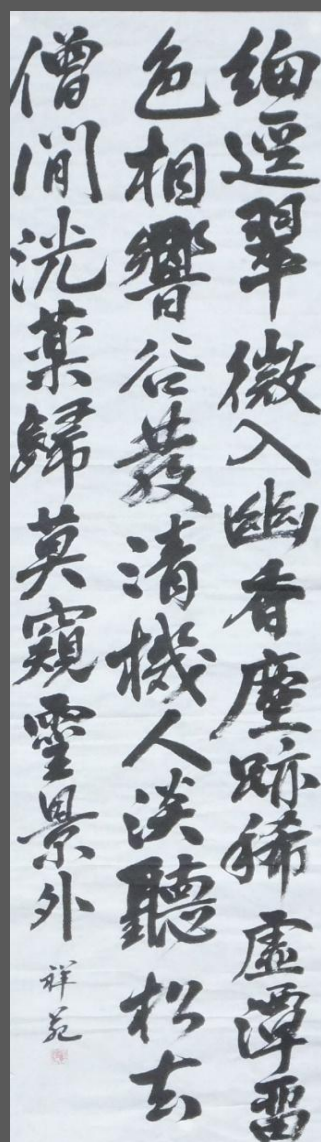 細逕翠微入幽香塵跡稀虚潭留
色相響谷發清機人淡聽松去
僧閒洗薬歸莫窺霊景外
祥苑